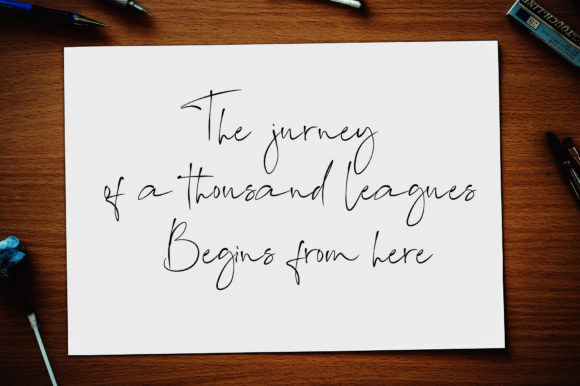 The jurney
of a thousand leagues
Begins from here